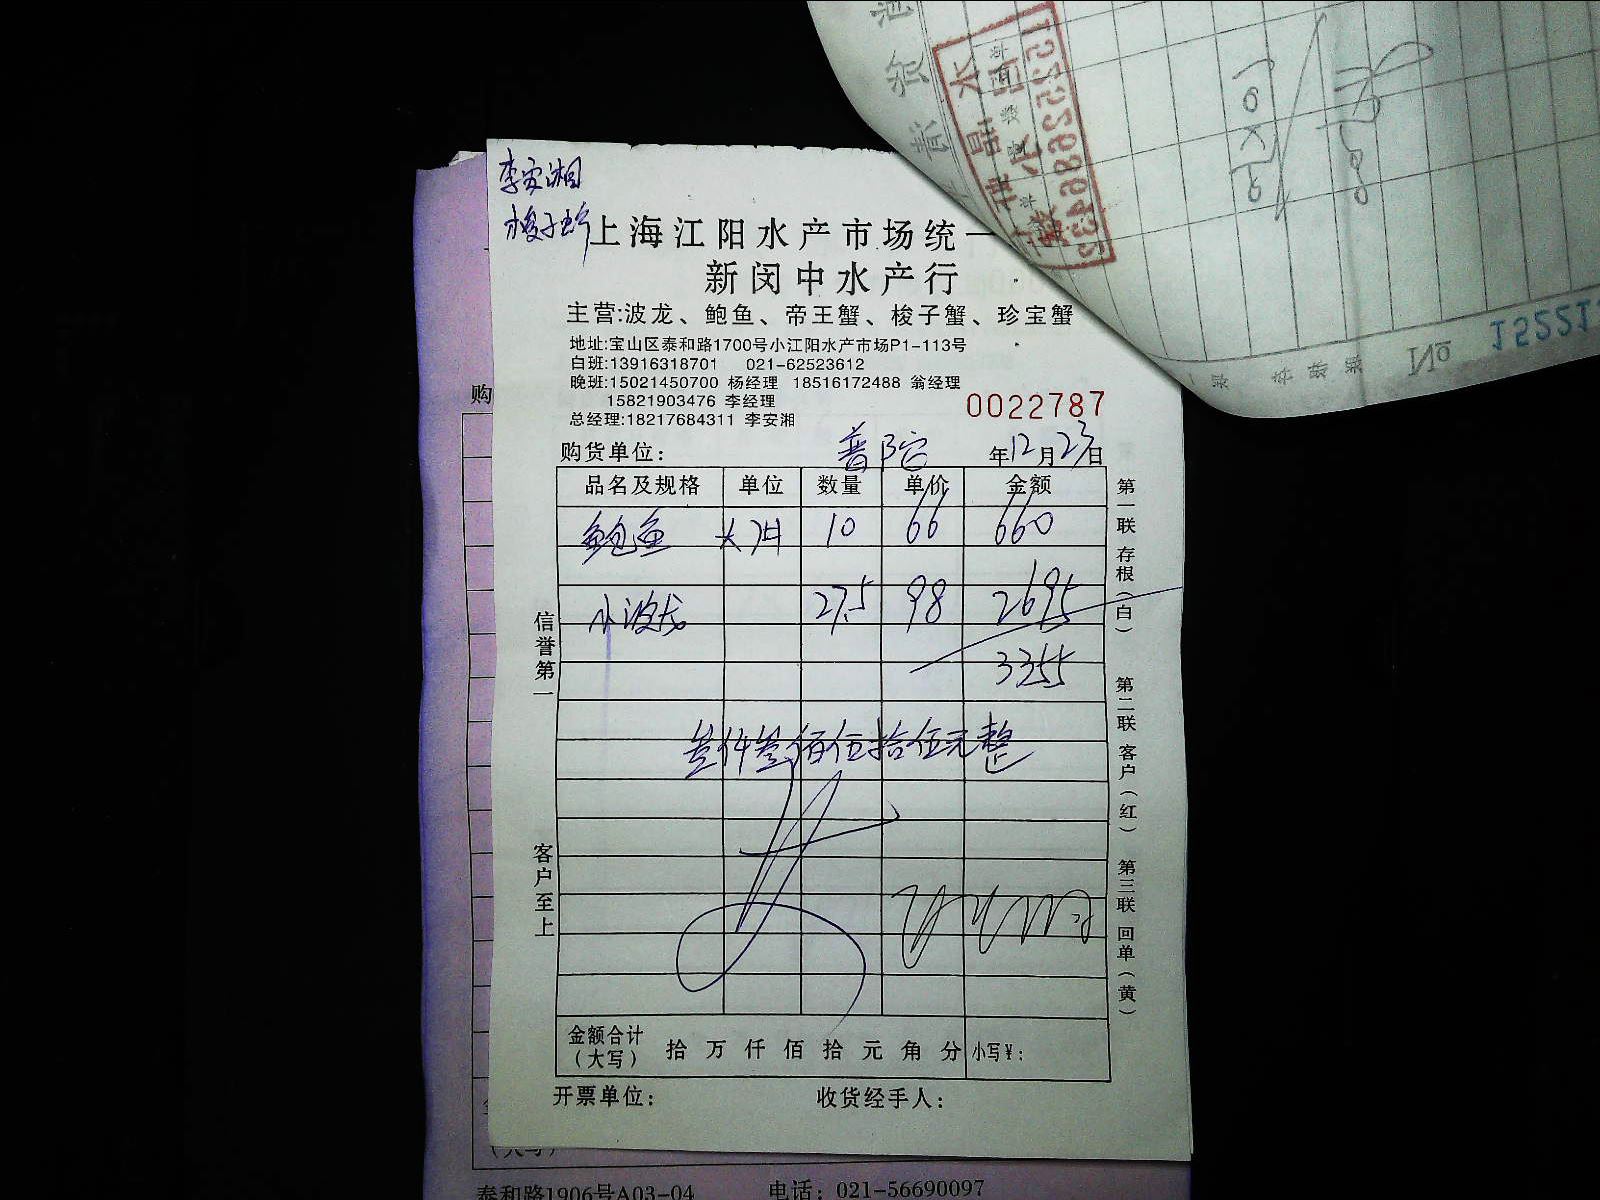 李安湘
梭子蟹
上海江阳水产市场统一
新闵中水产行
主营:波龙、鲍鱼、帝王蟹、梭子蟹、珍宝蟹
地址:宝山区泰和路1700号小江阳水产市场P1-113号
白班:13916318701 021-62523612
晚班:15021450700 杨经理 18516172488 翁经理
15821903476 李经理
总经理:18217684311 李安湘
0022787
购货单位: 普陀 年12月23日
品名及规格 单位 数量 单价 金额
鲍鱼 10 66 660
小波龙 27.5 98 2695
3355
叁仟叁佰伍拾伍元整
金额合计
(大写) 拾 万 仟 佰 拾 元 角 分 小写¥:
开票单位: 收货经手人:
信誉第一
客户至上
第一联 存根(白)
第二联 客户(红)
第三联 回单(黄)
购
泰和路1906号A03-04 电话: 021-56690097
№ 15221